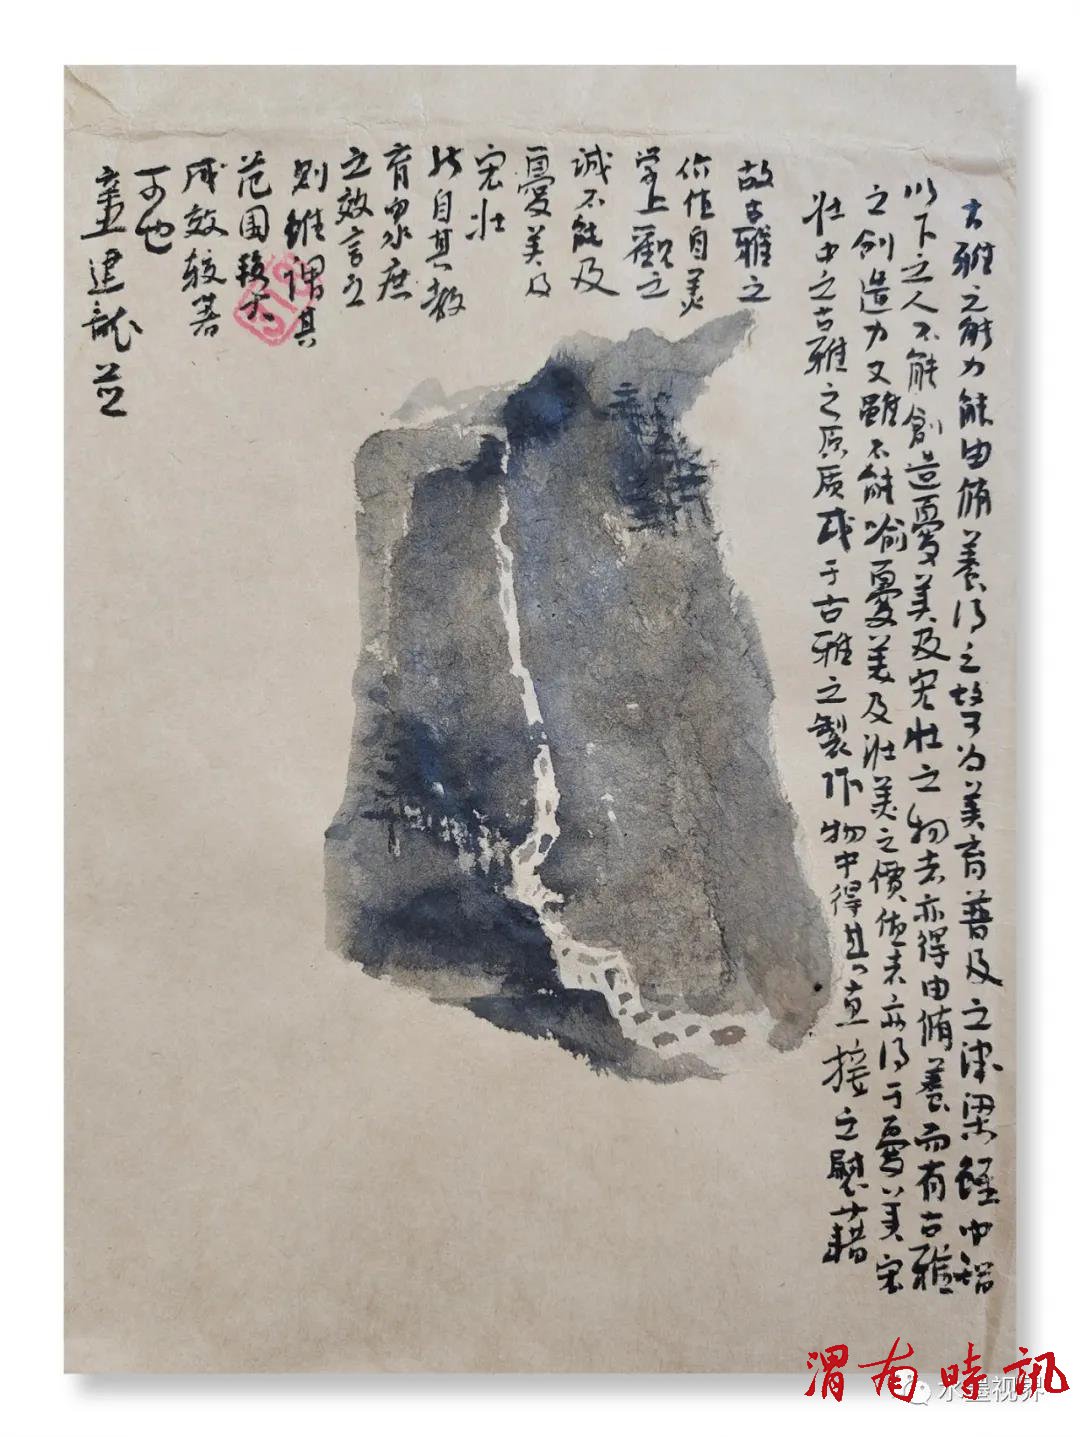 古雅之能力能由脩養得之故可为美育普及之津梁雖中智
以下之人不能創造憂美及宏壮之物者亦得由脩養而有古雅
之創造力又雖不能喻憂美及壮美之價值者亦得于憂美宏
壮中之古雅之原质或于古雅之製作物中得其直接之慰藉
故古雅之
价值自美
学上觀之
诚不能及
憂美及
宏壮
然自其教
育眾庶
之效言之
则雖谓其
范围较大
成效较著
可也
建龍
渭南時訊
水墨视界